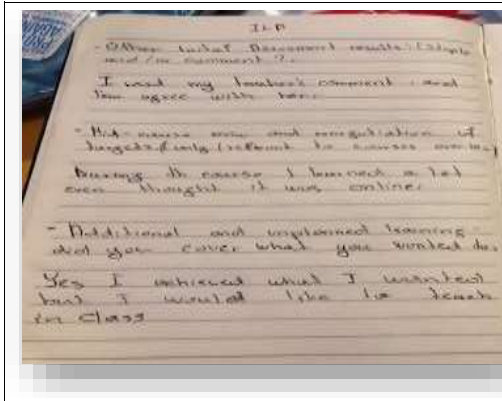 ILP
- Other Initial Assessment results: (
and/or comment?.
I read my teacher's comment, and
I'm agree with her.
- Mid-course review and renegotiation of
targets (only relevant to courses over
During th course I learned a lot
even thought it was online.
- Additional and unplanned learning -
did you cover what you wanted to.
Yes I achieved what I wanted
but I would like to teach
in class